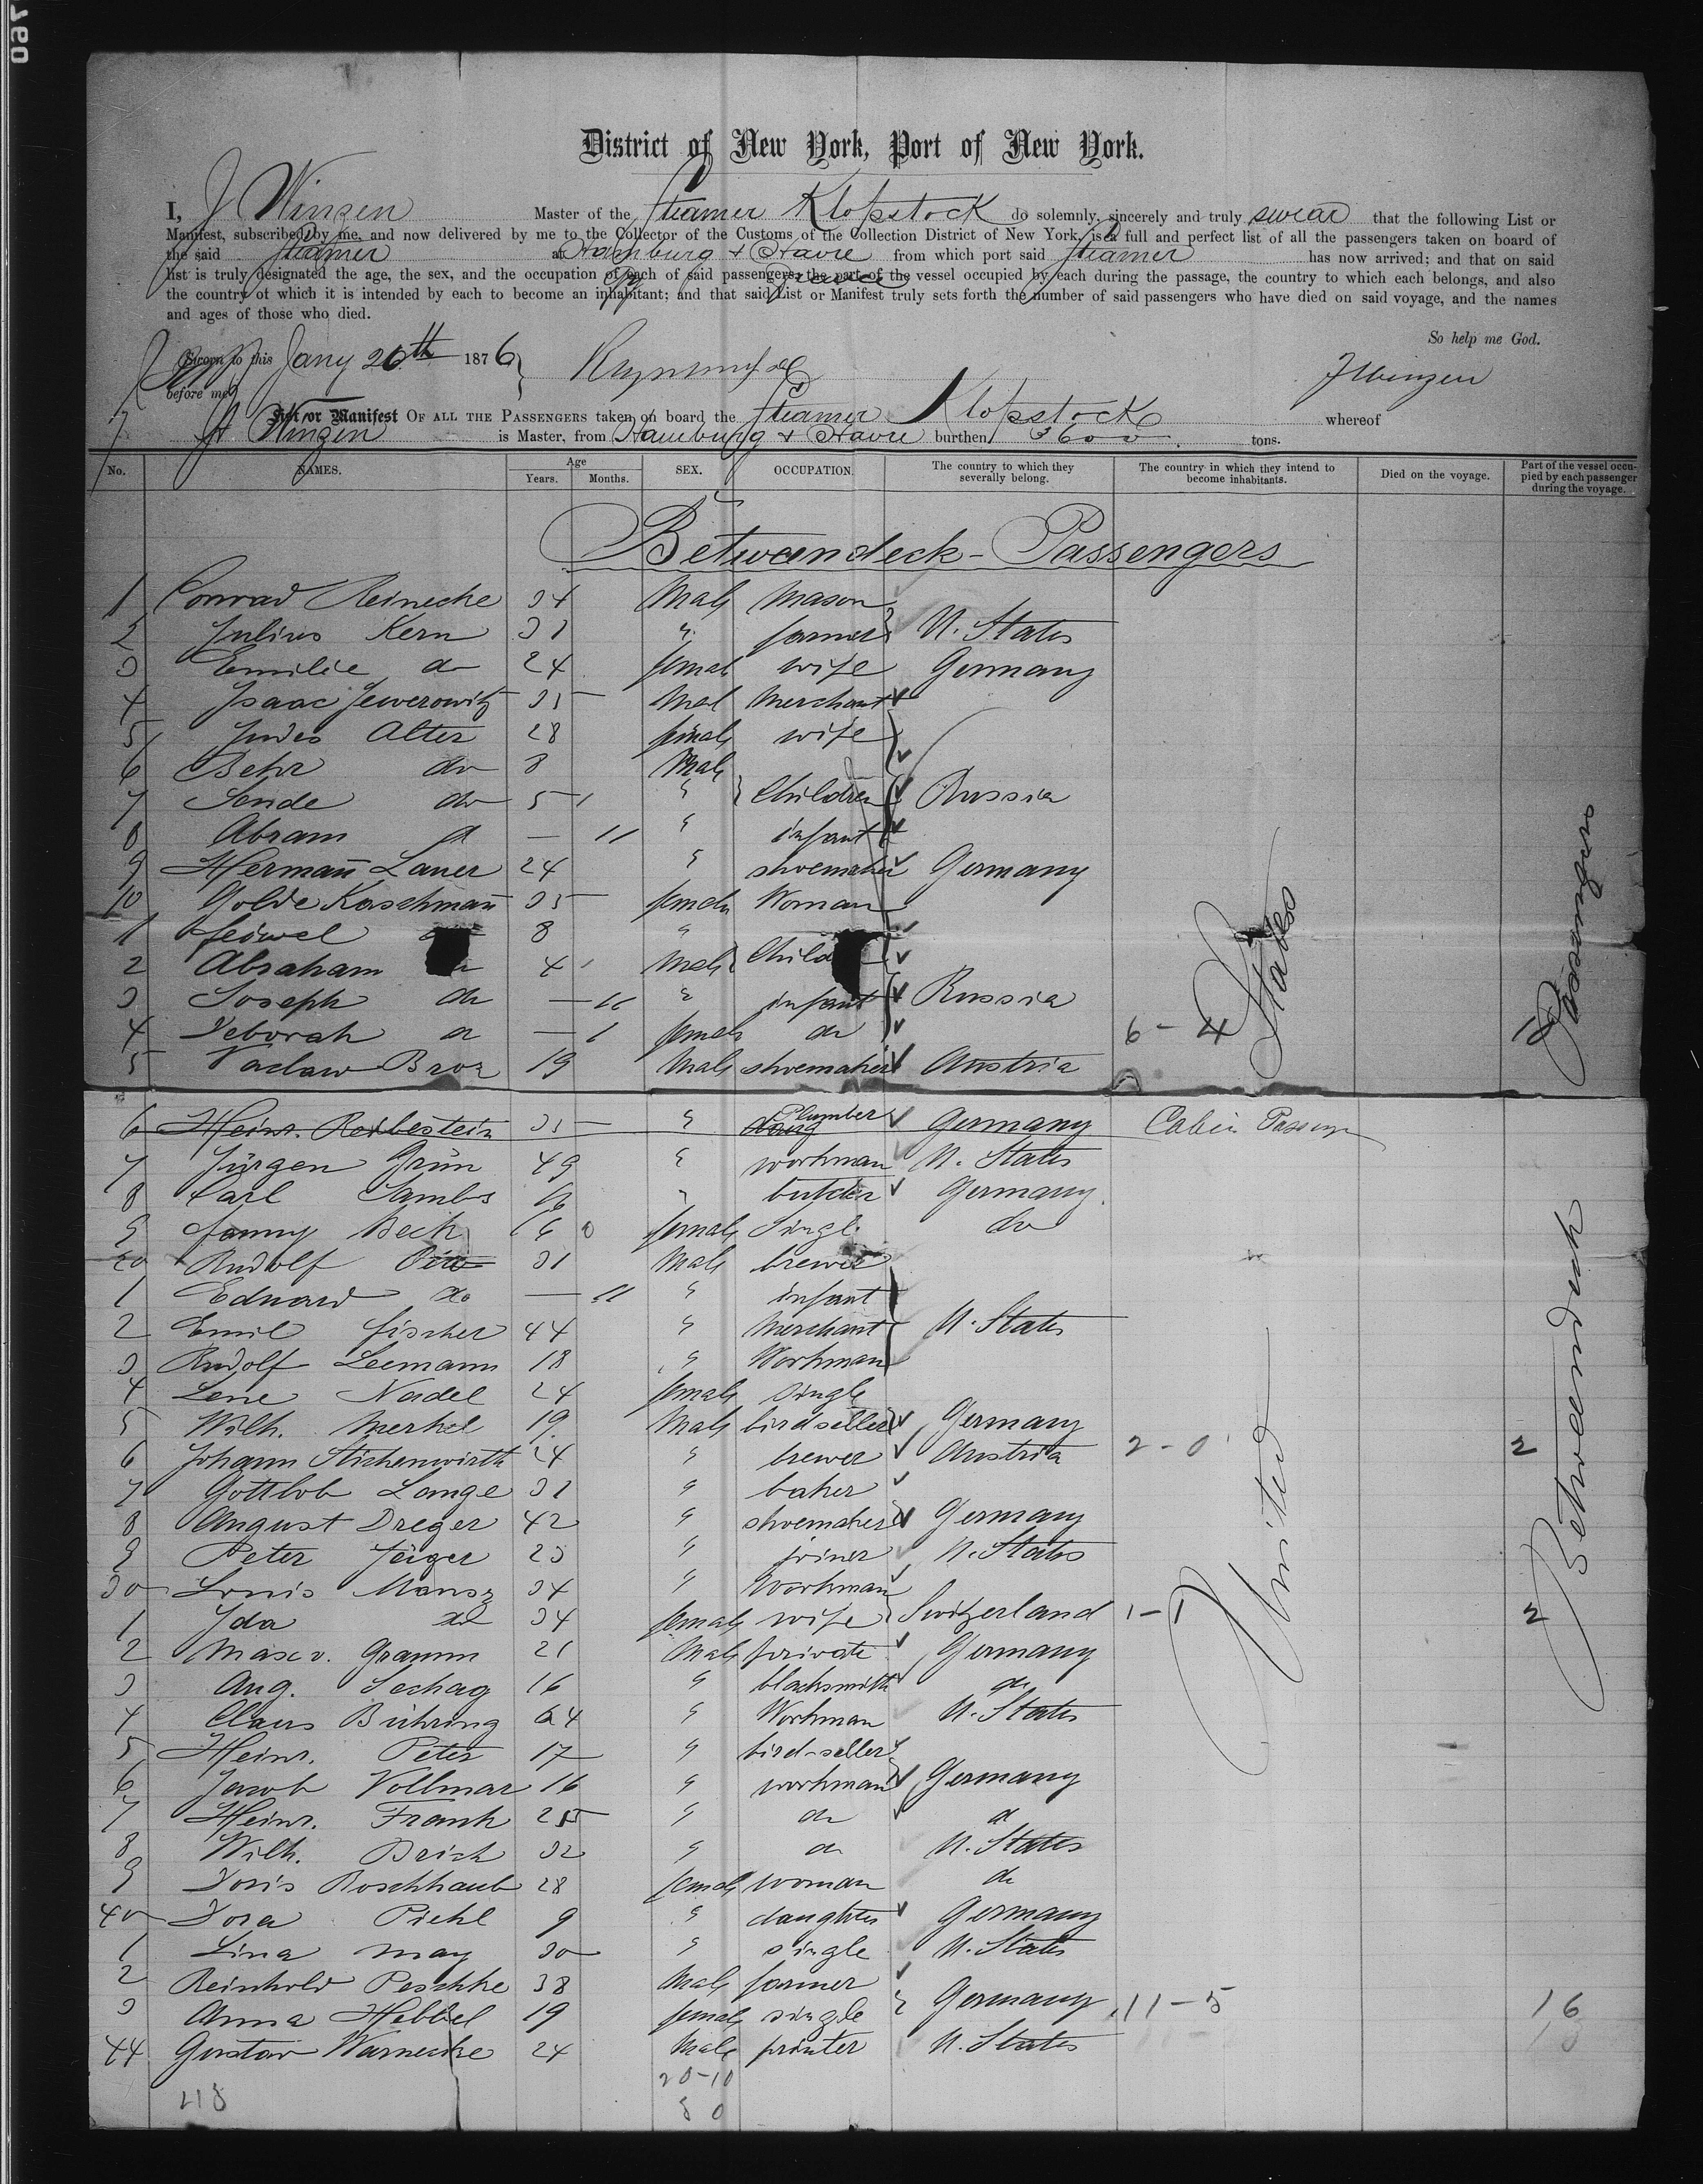 District of New York, Port of New York.
I, J Winzen Master of the Steamer Klopstock do solemnly, sincerely and truly swear that the following List or
Manifest, subscribed by me, and now delivered by me to the Collector of the Customs of the Collection District of New York, is a full and perfect list of all the passengers taken on board of
the said Steamer at Hamburg & Havre from which port said Steamer has now arrived; and that on said
list is truly designated the age, the sex, and the occupation of each of said passengers, the part of the vessel occupied by each during the passage, the country to which each belongs, and also
the country of which it is intended by each to become an inhabitant; and that said List or Manifest truly sets forth the number of said passengers who have died on said voyage, and the names
and ages of those who died.
So help me God.
Sworn to this Jany 26th 1876
before me
J Winzen
List or Manifest OF ALL THE PASSENGERS taken on board the Steamer Klopstock whereof
Winzen is Master, from Hamburg & Havre burthen 3600 tons.
No. NAMES. Age Years. Months. SEX. OCCUPATION. The country to which they severally belong. The country in which they intend to become inhabitants. Died on the voyage. Part of the vessel occupied by each passenger during the voyage.
Betweendeck-Passengers
1 Conrad Reinecke 34 Male Mason
2 Julius Kern 31 " farmer U. States
3 Emilie do 24 female wife Germany
4 Isaac Jewerowitz 35 Mal Merchant
5 Judes Alter 28 female wife
6 Behr do 8 Male
7 Sende do 5 " Children Russia
8 Abram do — 11 " infant
9 Hermann Lauer 24 " shoemaker Germany
10 Golde Kaschmann 35 female Woman
1 Feiwel 8 "
2 Abraham 4 Male Child
3 Joseph do — 11 " infant Russia
4 Deborah do — 1 female do 6-4
5 Vaclaw Broz 19 Male shoemaker Austria
6 Heinr. Reibestein 35 " Plumber Germany Cabin Passenger
7 Jürgen Grün 49 " workman U. States
8 Carl Lambs " butcher Germany
9 Fanny Beck 16 female Single do
20 Rudolf 31 Male brewer
1 Eduard do — 11 " infant
2 Emil Fischer 44 " Merchant U. States
3 Rudolf Leemann 18 " Workman
4 Lene Nadel 24 female single
5 Wilh. Merkel 19 Male birdseller Germany
6 Johann Stichenwirth 24 " brewer Austria 2-0 2
7 Gottlob Lange 31 " baker
8 August Dreger 42 " shoemaker Germany
9 Peter Jeiger 23 " joiner U. States
30 Louis Mansz 34 " Workman
1 Ida do 34 female wife Switzerland 1-1 2
2 Max v. Gramm 21 Male private Germany
3 Aug. Sechag 16 " blacksmith do
4 Claus Bühring 64 " Workman U. States
5 Heinr. Peter 17 " bird-seller
6 Jacob Vollmar 16 " workman Germany
7 Heinr. Frank 25 " do do
8 Wilh. Brich 32 " do U. States
9 Doris Roschhaub 28 female woman do
40 Dora Piehl 9 " daughter Germany
1 Lina May 30 " single U. States
2 Reinhold Peschke 38 Male farmer
3 Anna Hebbel 19 female single Germany 11-5 16
44 Gustav Warnecke 24 Male printer U. States
20-10
United States
Betweendeck Passengers